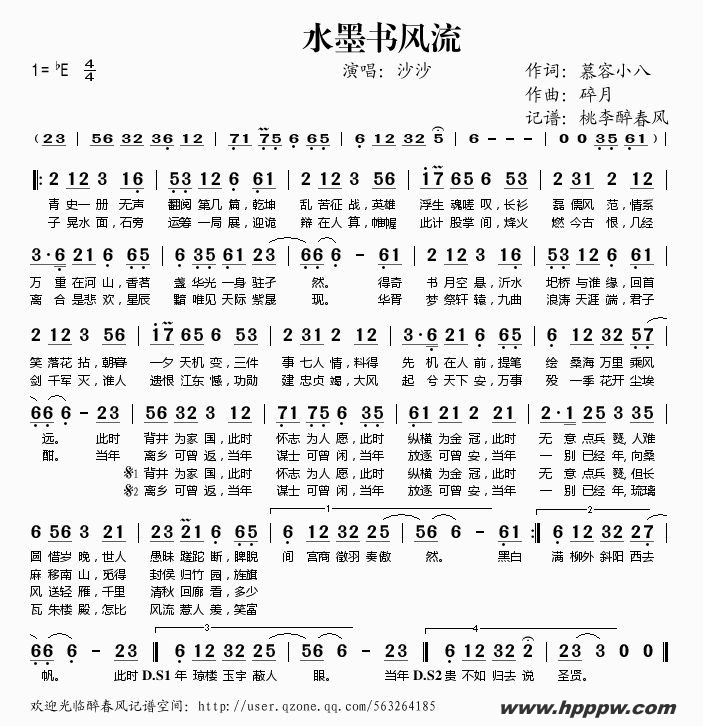 水墨书风流
1= ♭E 4/4 演唱：沙沙 作词：慕容小八
作曲：碎月
记谱：桃李醉春风
( 23 | 56 32 36 12 | 71 75 6 65 | 6 12 32 12 | 6 - - - | 0 0 35 61 )
‖: 2 12 3 16 | 53 12 6 61 | 2 12 3 56 | i7 65 6 53 | 2 12 3 16
青 史一 册 无声 翻阅 第几 篇，乾坤 乱 苦征 战，英雄 浮生 魂嗟 叹，长衫 磊 儒风 范，情系
子 晃水 面，石旁 运筹 一局 展，迎诡 辩 在人 算，帷幄 此计 股掌 间，烽火 燃 今古 恨，几经
3·6 21 6 65 | 6 35 61 23 | 66 6 - 61 | 2 12 3 16 | 53 12 6 61
万 重 在河 山，香茗 盏 华光 一身 驻孑 然。 得奇 书 月空 悬，沂水 圯桥 与谁 缘，回首
离 合 是悲 欢，星辰 黯 唯见 天际 紫晟 现。 华胥 梦 祭轩 辕，九曲 浪涛 天涯 端，君子
2 12 3 56 | i7 65 6 53 | 2 12 3 12 | 3·6 21 6 65 | 6 12 32 57
笑 落花 拈，朝春 一夕 天机 变，三件 事 七人 情，料得 先 机 在人 前，提笔 绘 桑海 万里 乘风
剑 千军 灭，谁人 遗恨 江东 憾，功勋 建 忠贞 竭，大风 起 兮 天下 安，万事 殁 一季 花开 尘埃
66 6 - 23 | 56 32 3 12 | 71 75 6 35 | 61 21 2 12 | 2·1 25 3 35
远。 此时 背井 为家 国，此时 怀志 为人 愿，此时 纵横 为金 冠，此时 无 意 点兵 燹，人难
酣。 当年 离乡 可曾 返，当年 谋士 可曾 闲，当年 放逐 可曾 安，当年 一 别 已经 年，向桑
𝄋1 背井 为家 国，此时 怀志 为人 愿，此时 纵横 为金 冠，此时 无 意 点兵 燹，但长
𝄋2 离乡 可曾 返，当年 谋士 可曾 闲，当年 放逐 可曾 安，当年 一 别 已经 年，琉璃
6 56 3 21 | 23 21 6 65 | 6 12 32 25 | 56 6 - 61 :‖ 6 12 32 27
圆 惜岁 晚，世人 愚昧 蹉跎 断，睥睨 间 宫商 徵羽 奏傲 然。 黑白 满 柳外 斜阳 西去
麻 移南 山，觅得 封侯 归竹 园，旌旗
风 送轻 雁，千里 清秋 回廊 看，多少
瓦 朱楼 殿，怎比 风流 惹人 羡，笑富
66 6 - 23 | 6 12 32 25 | 56 6 - 23 | 6 12 32 2 | 23 3 0 0
帆。 此时 D.S1 年 琼楼 玉宇 蔽人 眼。 当年 D.S2 贵 不如 归去 说 圣贤。
欢迎光临醉春风记谱空间：http://user.qzone.qq.com/563264185
www.hpppw.com